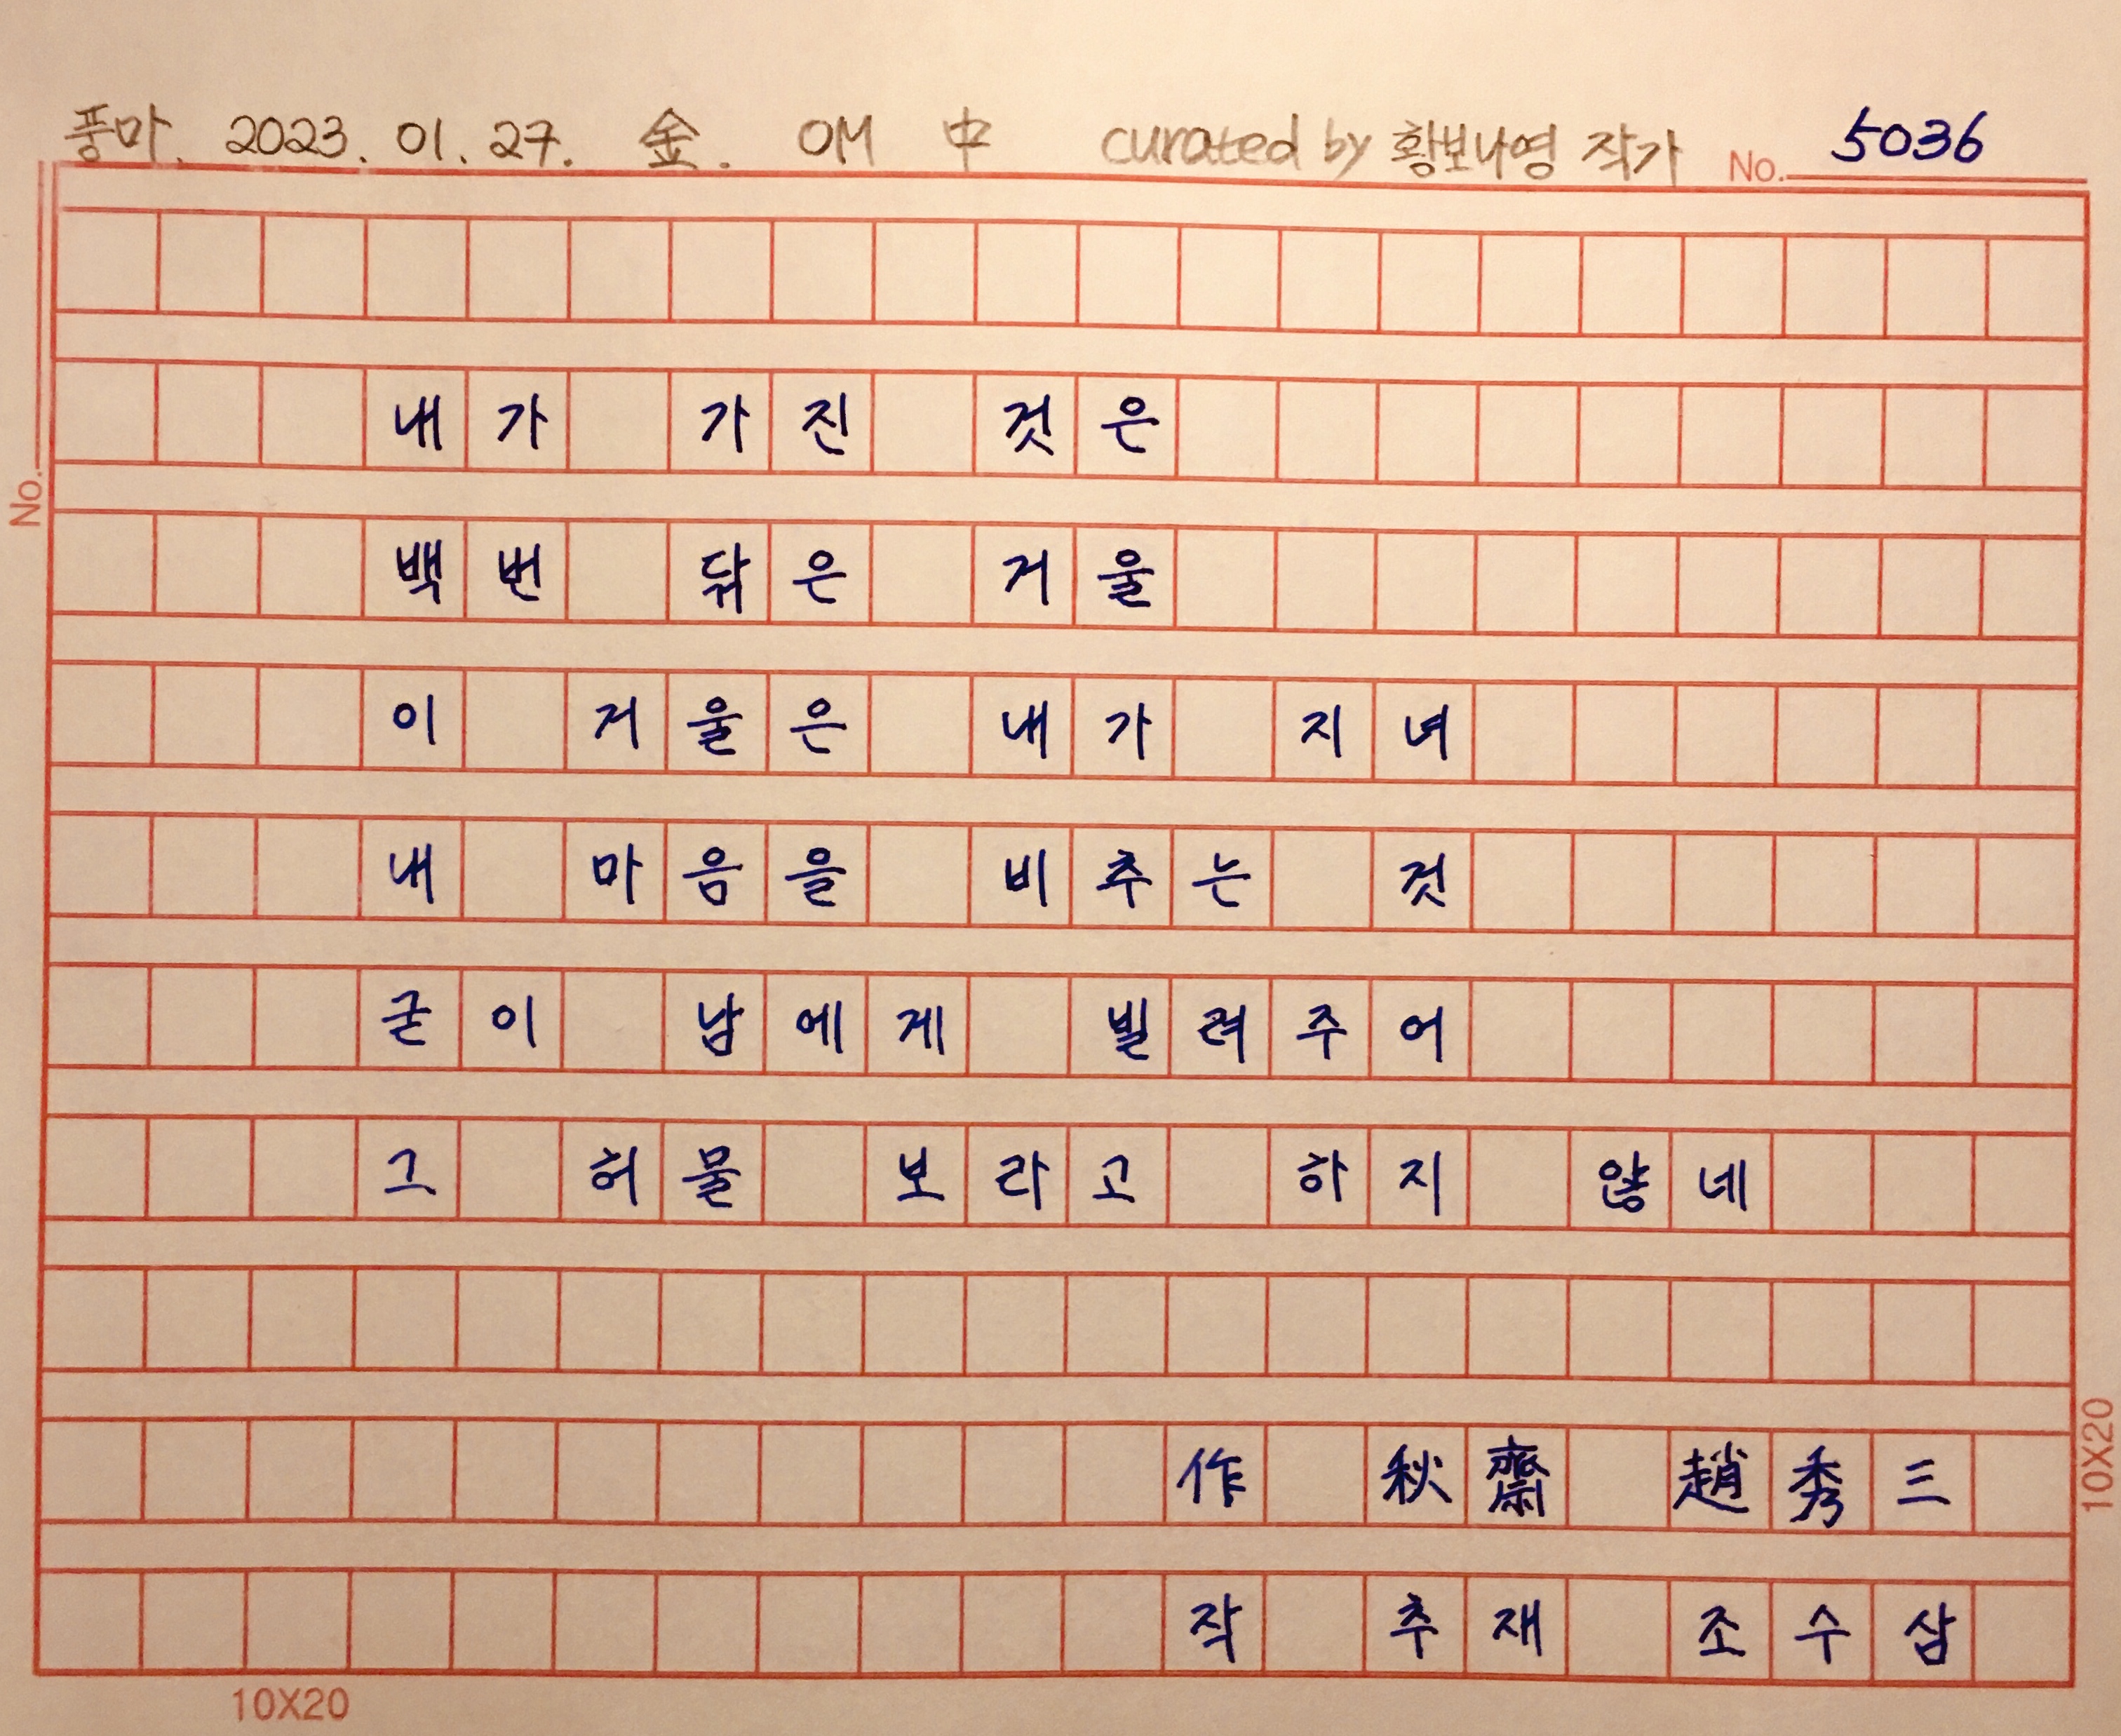 풍마. 2023. 01. 27. 金. OM 中 curated by 황보나영 작가 No. 5036
No.
내가 가진 것은
백번 닦은 거울
이 거울은 내가 지녀
내 마음을 비추는 것
굳이 남에게 빌려주어
그 허물 보라고 하지 않네
作 秋齋 趙秀三
작 추재 조수삼
10X20
10X20